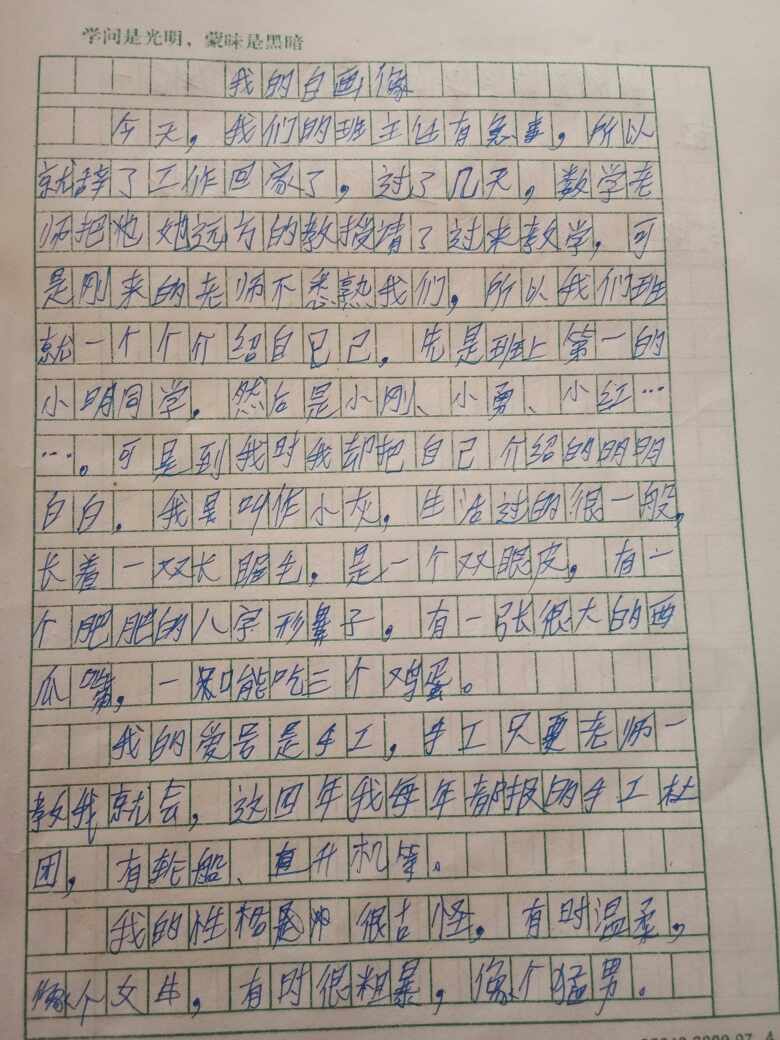 学问是光明，蒙昧是黑暗
我的自画像
今天，我们的班主任有急事，所以
就辞了工作回家了，过了几天，数学老
师把他她远方的教授请了过来教学，可
是刚来的老师不悉熟我们，所以我们班
就一个个介绍自己己，先是班上第一的
小明同学，然后是小刚、小勇、小红…
…。可是到我时我却把自己介绍的明明
白白，我是叫作小灰，生活过的很一般，
长着一双长眼毛，是一个双眼皮，有一
个肥肥的八字形鼻子，有一张很大的西
瓜嘴，一只能吃三个鸡蛋。
我的爱号是手工，手工只要老师一
教我就会，这四年我每年都报的手工社
团，有轮船、直升机等。
我的性格是很古怪，有时温柔，
像个女生，有时很粗暴，像个猛男。